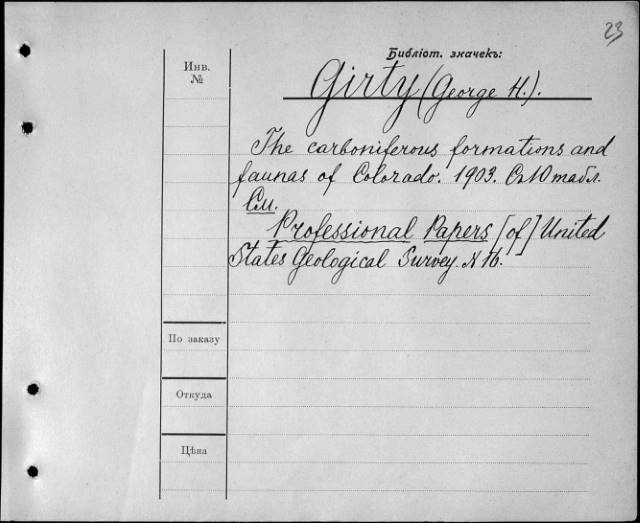 23
Библіот. значекъ:
Инв.
№
Girty (George H.).
The carboniferous formations and
faunas of Colorado. 1903. Съ 10 табл.
См.
Professional Papers [of] United
States Geological Survey. N 16.
По заказу
Откуда
Цѣна